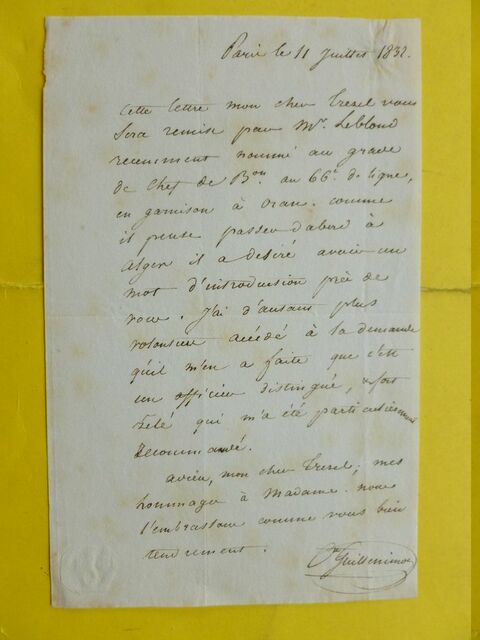 Paris le 11 Juillet 1832.
Cette lettre mon cher Trezel vous
sera remise par Mr. Leblond
recemment nommé au grade
de Chef de Bon. au 66e. de ligne,
en garnison à Oran. comme
il pense passer d'abord à
Alger il a desiré avoir un
mot d'introduction près de
vous. J'ai d'autant plus
volontiers accédé à la demande
qu'il m'en a faite que c'est
un officier distingué, & fort
zélé qui m'a été particulièrement
recommandé.
adieu, mon cher Trezel; mes
hommages à Madame. nous
l'embrassons comme vous bien
tendrement.
Guilleminot